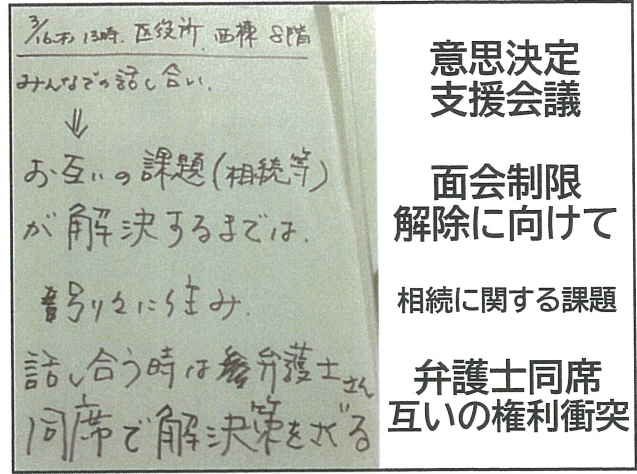 3/16、木、13時、区役所、西棟 8階
みんなでの話し合い、
⇓
お互いの課題(相続等)
が解決するまでは、
別々に住み、
話し合う時は弁護士さん
同席で解決策をさぐる
意思決定
支援会議
面会制限
解除に向けて
相続に関する課題
弁護士同席
互いの権利衝突